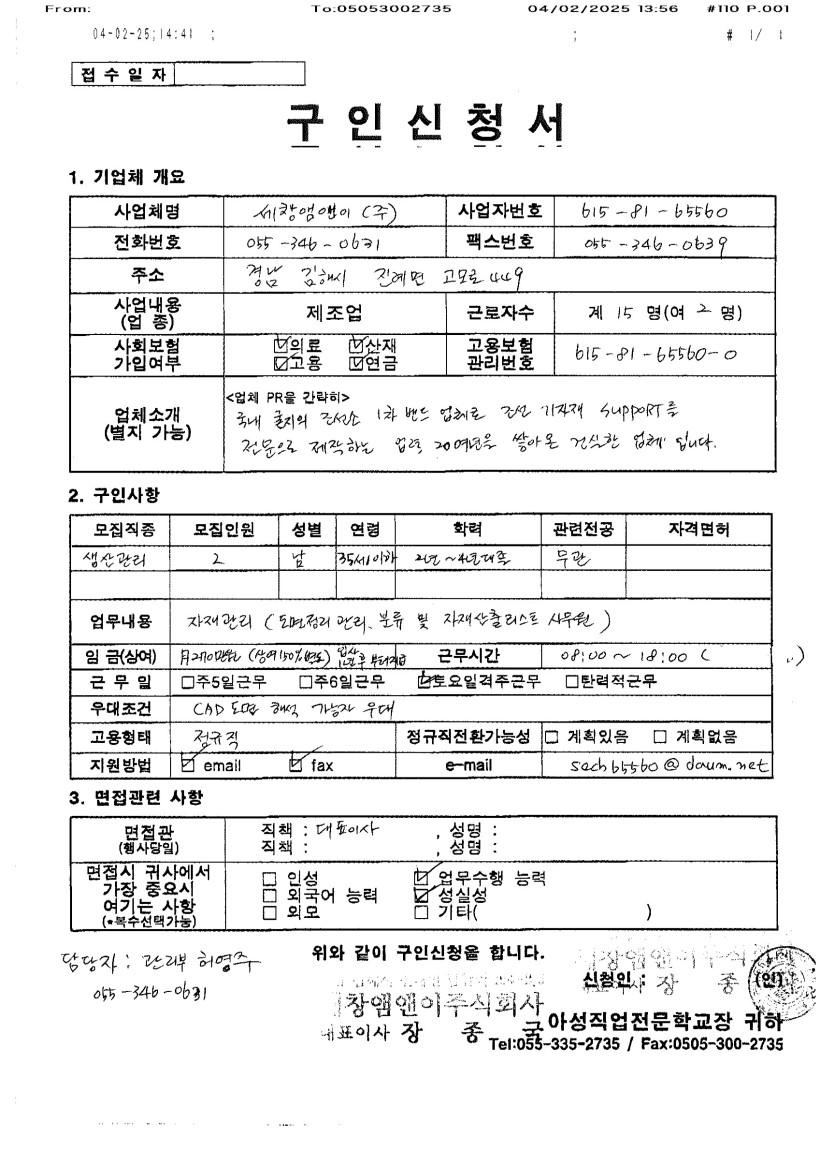 From: To:05053002735 04/02/2025 13:56 #110 P.001
04-02-25;14:41 ; ; # 1/ 1
접 수 일 자
구 인 신 청 서
1. 기업체 개요
사업체명 세창앰앤이 (주) 사업자번호 615-81-65560
전화번호 055-346-0631 팩스번호 055-346-0639
주소 경남 김해시 진례면 고모로 449
사업내용 (업 종) 제조업 근로자수 계 15 명(여 2 명)
사회보험 가입여부 ☑의료 ☑산재 ☑고용 ☑연금 고용보험 관리번호 615-81-65560-0
업체소개 (별지 가능)
<업체 PR을 간략히>
국내 굴지의 조선소 1차 밴드 업체로 조선 기자재 SUPPORT를
전문으로 제작하는 업력 20여년을 쌓아온 건실한 업체 입니다.
2. 구인사항
모집직종 모집인원 성별 연령 학력 관련전공 자격면허
생산관리 2 남 35세이하 2년~4년대졸 무관
업무내용 자재관리 (도면정리 관리, 분류 및 자재산출리스트 사무원)
임 금(상여) 月270만원 (상여150%별도) 입사 1년후 부터지급 근무시간 08:00 ~ 18:00 ( )
근 무 일 □주5일근무 □주6일근무 ☑토요일격주근무 □탄력적근무
우대조건 CAD 도면 해석 가능자 우대
고용형태 정규직 정규직전환가능성 □ 계획있음 □ 계획없음
지원방법 ☑ email ☑ fax e-mail sech65560@daum.net
3. 면접관련 사항
면접관 (행사당일)
직책 : 대표이사 , 성명 :
직책 : , 성명 :
면접시 귀사에서 가장 중요시 여기는 사항 (*복수선택가능)
□ 인성 ☑ 업무수행 능력
□ 외국어 능력 ☑ 성실성
□ 외모 □ 기타( )
담당자 : 관리부 허영주
055-346-0631
위와 같이 구인신청을 합니다.
신청인 : 장 종 (인)
창앰앤이주식회사
대표이사 장 종 국
아성직업전문학교장 귀하
Tel:055-335-2735 / Fax:0505-300-2735